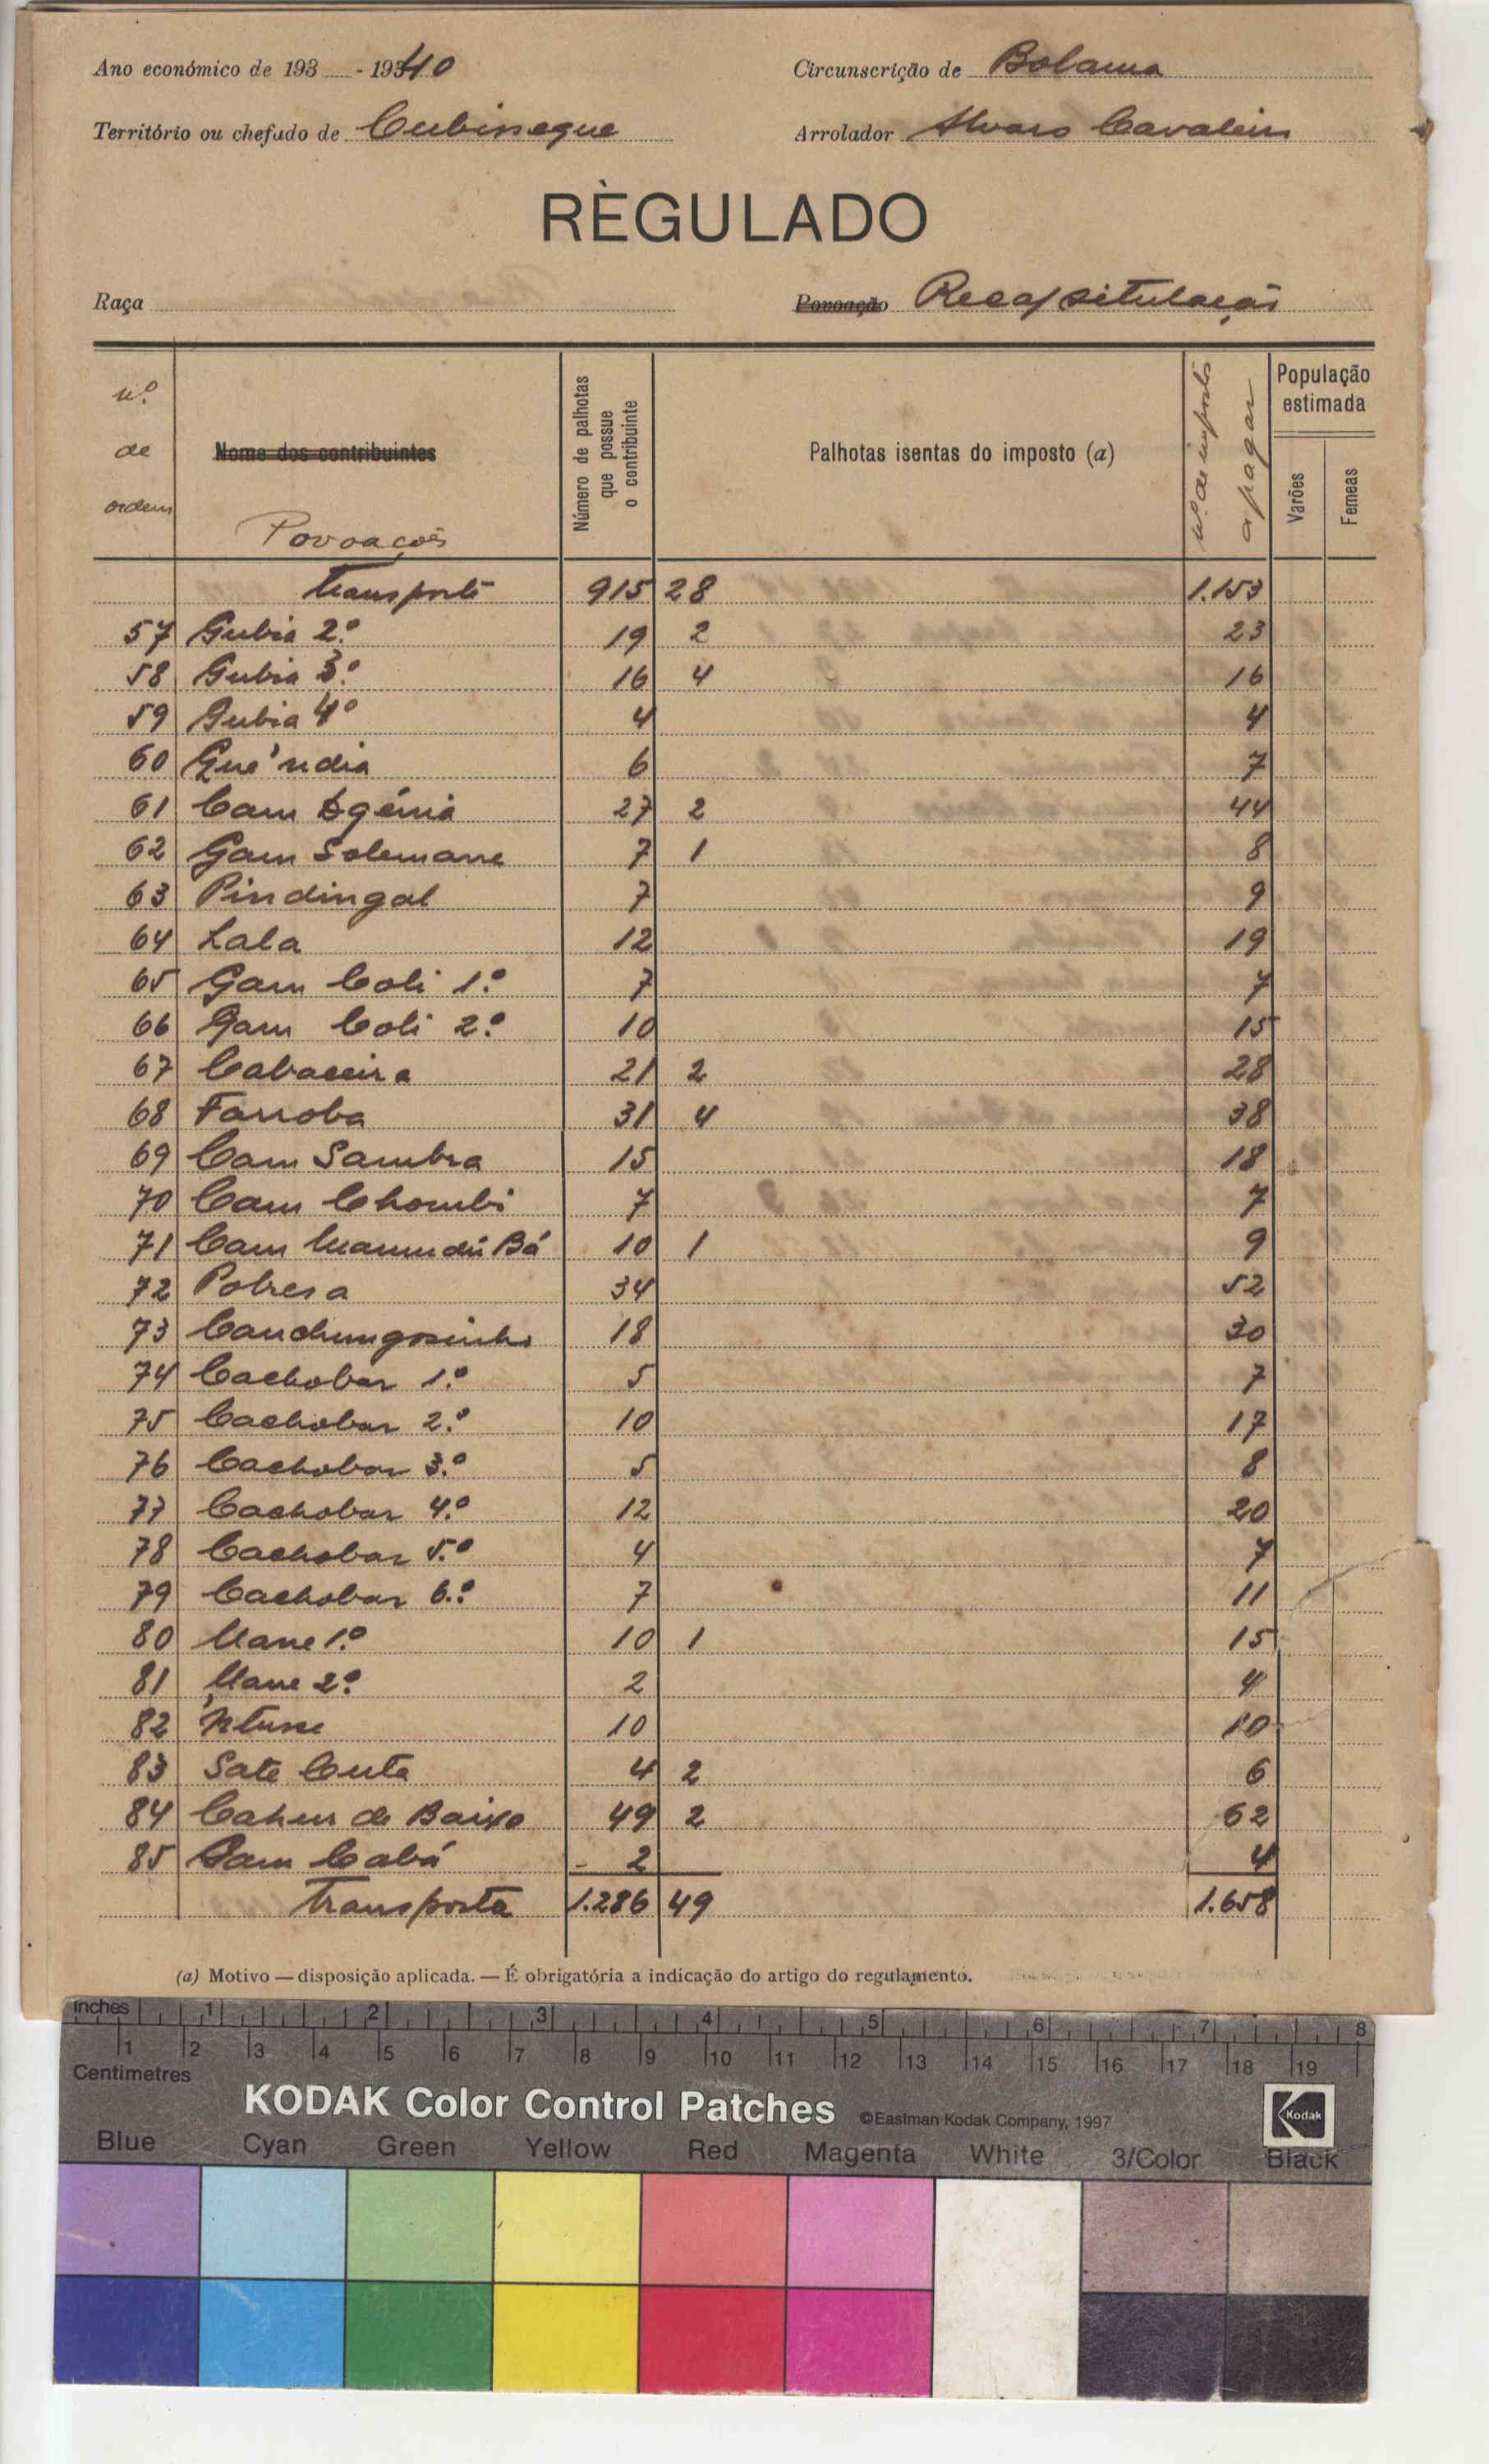 Ano económico de 193 - 1940 Circunscrição de Bolama
Território ou chefado de Cubisseque Arrolador Alvaro Cavaleiro
RÈGULADO
Raça Povoação Recapitulação
nº de ordem Nome dos contribuintes Povoações Número de palhotas que possue o contribuinte Palhotas isentas do imposto (a) nº de impostos a pagar População estimada Varões Femeas
Transporte 915 28 1.153
57 Gubia 2.º 19 2 23
58 Gubia 3.º 16 4 16
59 Gubia 4º 4 4
60 Gue'ndia 6 7
61 Cam 27 2 44
62 Gam Solemane 7 1 8
63 Pindingal 7 9
64 Lala 12 19
65 Gam Coli 1.º 7 7
66 Gam Coli 2.º 10 15
67 Cabaceira 21 2 28
68 Farroba 31 4 38
69 Cam Sambra 15 18
70 Cam Chombi 7 7
71 Cam Mamudú Bá 10 1 9
72 Pobresa 34 52
73 Canchungosinho 18 30
74 Cachobar 1.º 5 7
75 Cachobar 2.º 10 17
76 Cachobar 3.º 5 8
77 Cachobar 4.º 12 20
78 Cachobar 5.º 4 7
79 Cachobar 6.º 7 11
80 Mane 1.º 10 1 15
81 Mane 2.º 2 4
82 'Ntune 10 10
83 Sate Cuta 4 2 6
84 de Baixo 49 2 62
85 Gam Cabá 2 4
Transporta 1.286 49 1.658
(a) Motivo — disposição aplicada. — É obrigatória a indicação do artigo do regulamento.
Inches 1 2 3 4 5 6 7 8
1 2 3 4 5 6 7 8 9 10 11 12 13 14 15 16 17 18 19
Centimetres
KODAK Color Control Patches ©Eastman Kodak Company, 1997 Kodak
Blue Cyan Green Yellow Red Magenta White 3/Color Black